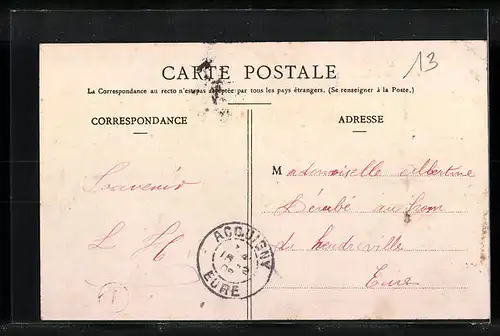 13
CARTE POSTALE
La Correspondance au recto n'est pas acceptée par tous les pays étrangers. (Se renseigner à la Poste.)
CORRESPONDANCE
ADRESSE
Souvenir
L H
Mademoiselle Albertine
au
Eure
ACQUIGNY
EURE